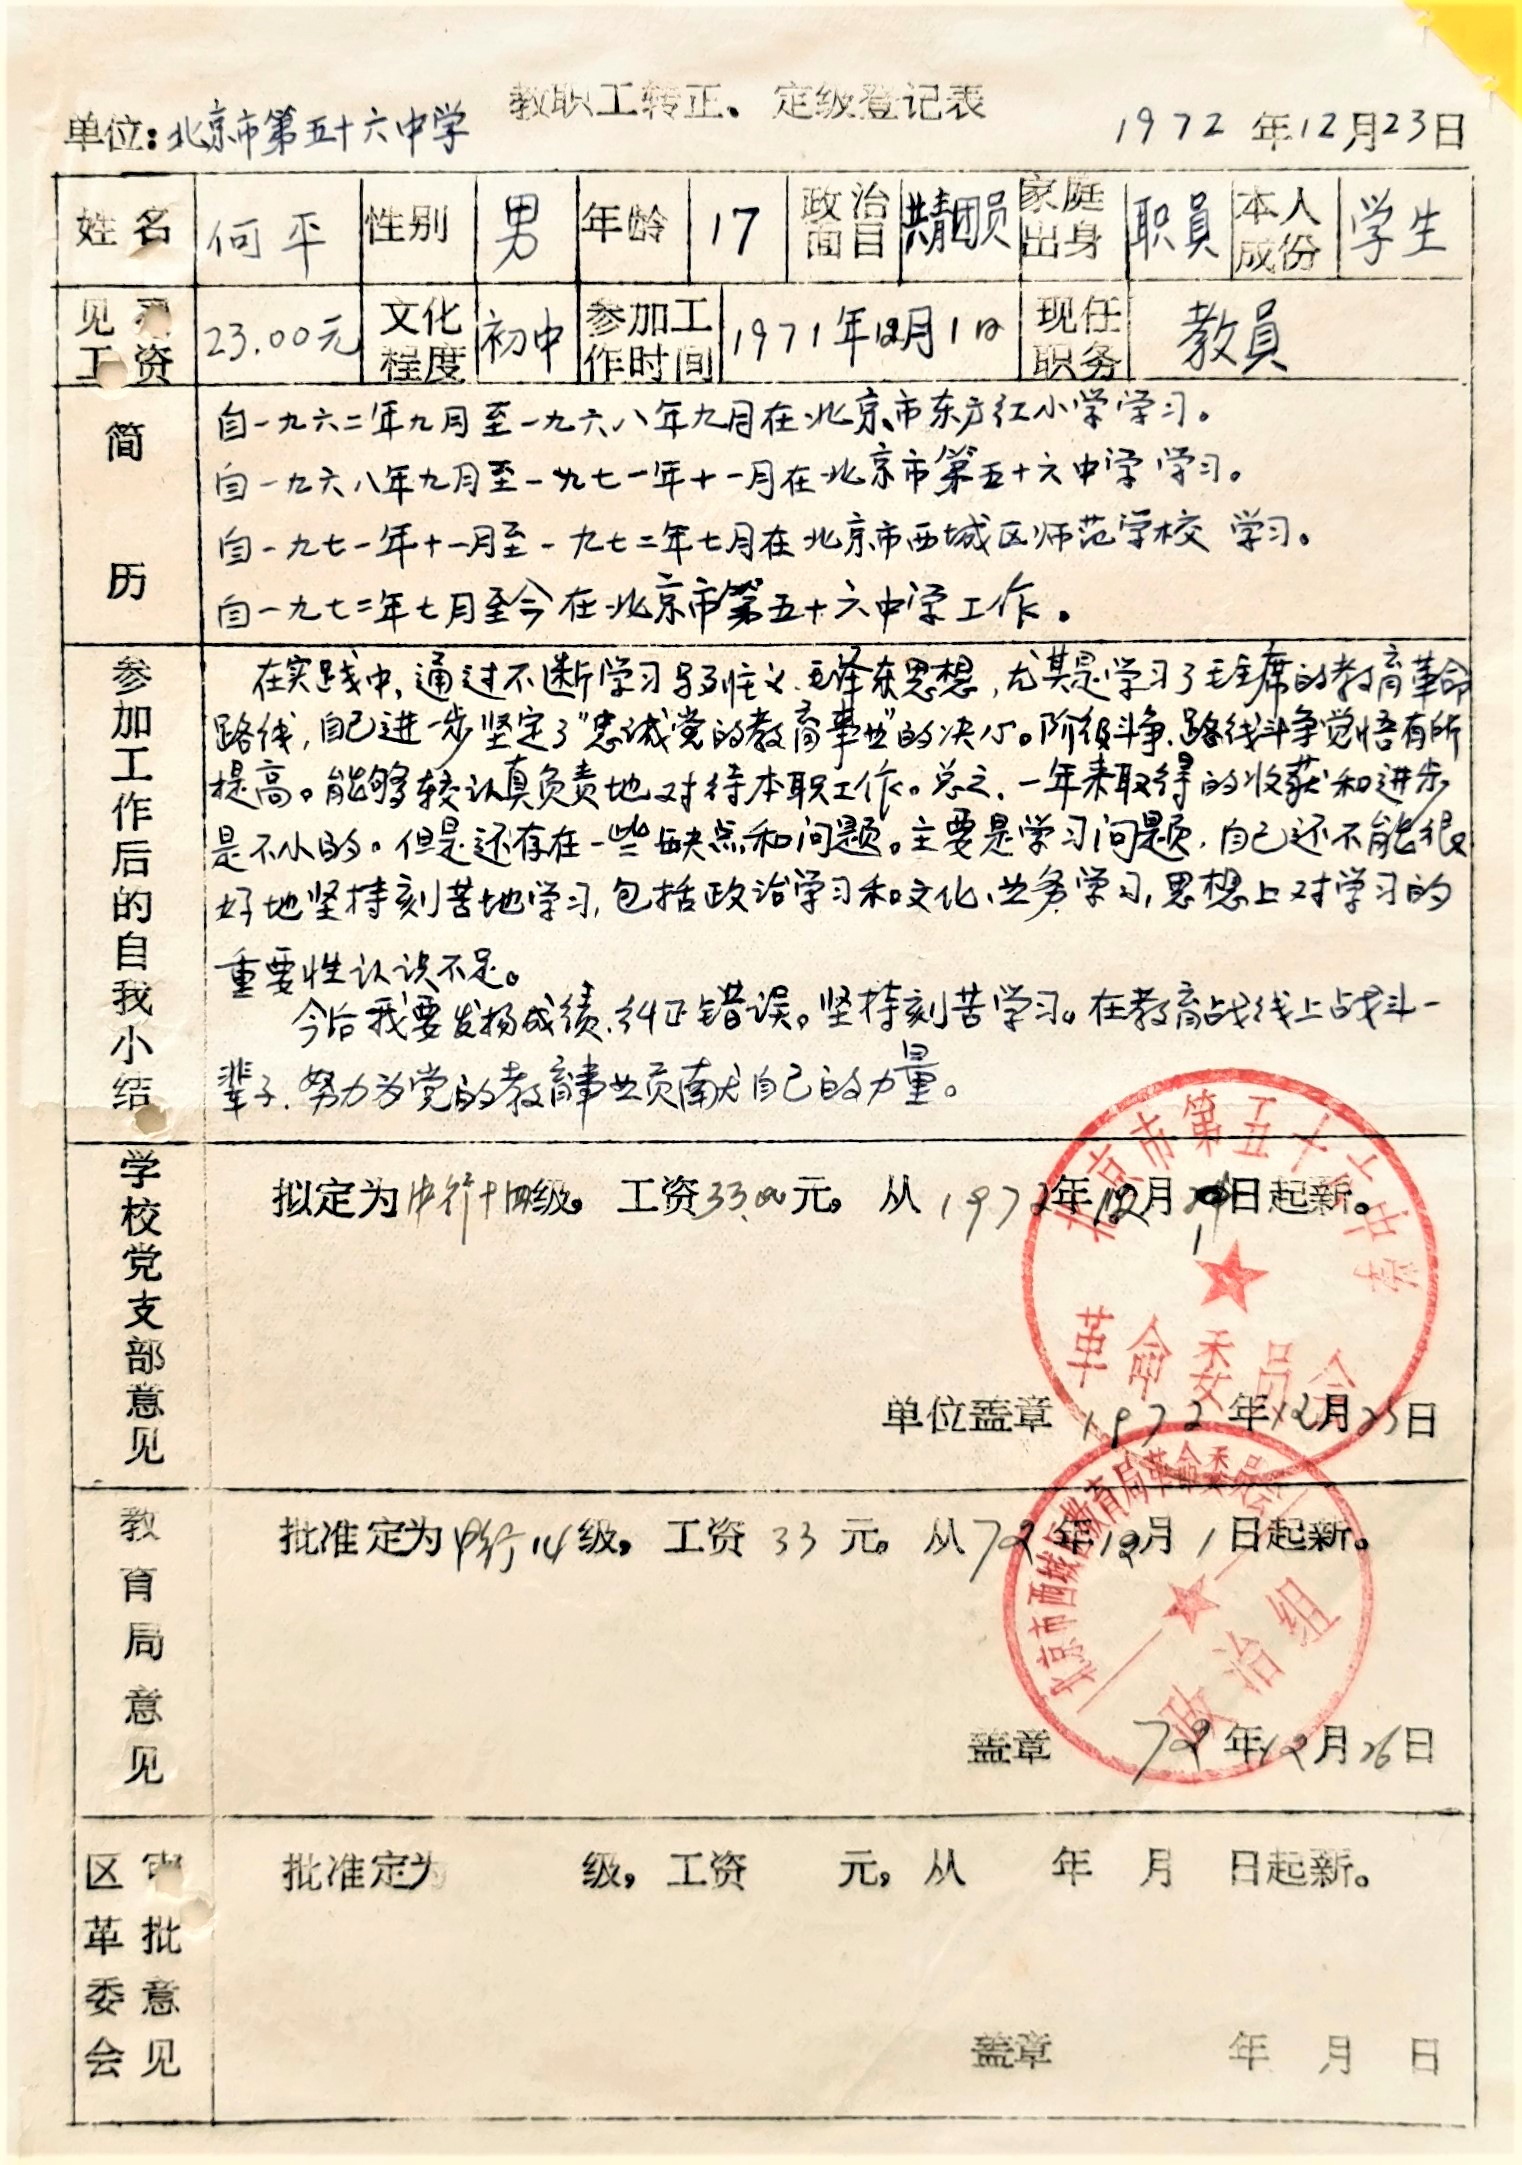 教职工转正、定级登记表
单位：北京市第五十六中学 1972年12月23日
姓名 何平 性别 男 年龄 17 政治面目 共青团员 家庭出身 职员 本人成份 学生
见工资 23.00元 文化程度 初中 参加工作时间 1971年12月1日 现任职务 教员
简历
自一九六二年九月至一九六八年九月在北京市东方红小学学习。
自一九六八年九月至一九七一年十一月在北京市第五十六中学学习。
自一九七一年十一月至一九七二年七月在北京市西城区师范学校 学习。
自一九七二年七月至今在北京市第五十六中学工作。
参加工作后的自我小结
在实践中，通过不断学习马列主义、毛泽东思想，尤其是学习了毛主席的教育革命
路线，自己进一步坚定了“忠诚党的教育事业”的决心。阶级斗争、路线斗争觉悟有所
提高。能够较认真负责地对待本职工作。总之，一年来取得的收获和进步
是不小的。但是还存在一些缺点和问题。主要是学习问题，自己还不能很
好地坚持刻苦地学习，包括政治学习和文化、业务学习，思想上对学习的
重要性认识不足。
今后我要发扬成绩，纠正错误。坚持刻苦学习。在教育战线上战斗一
辈子，努力为党的教育事业贡献自己的力量。
学校党支部意见
拟定为中行十四级，工资33.00元。从1972年12月1日起新。
北京市第五十六中学
革命委员会
单位盖章 1972年12月23日
教育局意见
批准定为中行14级，工资33元。从72年12月1日起新。
北京市西城区教育局革命委员会
政治组
盖章 72年12月26日
区革委会审批意见
批准定为 级，工资 元，从 年 月 日起新。
盖章 年 月 日